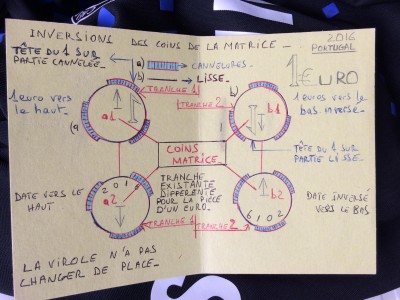 INVERSIONS DES COINS DE LA MATRICE_
2016
PORTUGAL
TÊTE DU 1 SUR
PARTIE CANNELÉE_
a) CANNELURES_
b) LISSE_
1€URO
1euro vers
le haut_
TRANCHE 1
TRANCHE 2
b)
1euros vers le
bas inverse_
(a
a1
b1
COINS
MATRICE
TÊTE DU 1 SUR
PARTIE LISSE_
DATE VERS LE
HAUT
2016
a2
TRANCHE_
EXISTANTE
DIFFERENTE
POUR LA PIÈCE
D'UN EURO_
b2
6102
DATE INVERSÉ
VERS LE BAS
TRANCHE 1
TRANCHE 2
LA VIROLE N'A PAS
CHANGER DE PLACE_